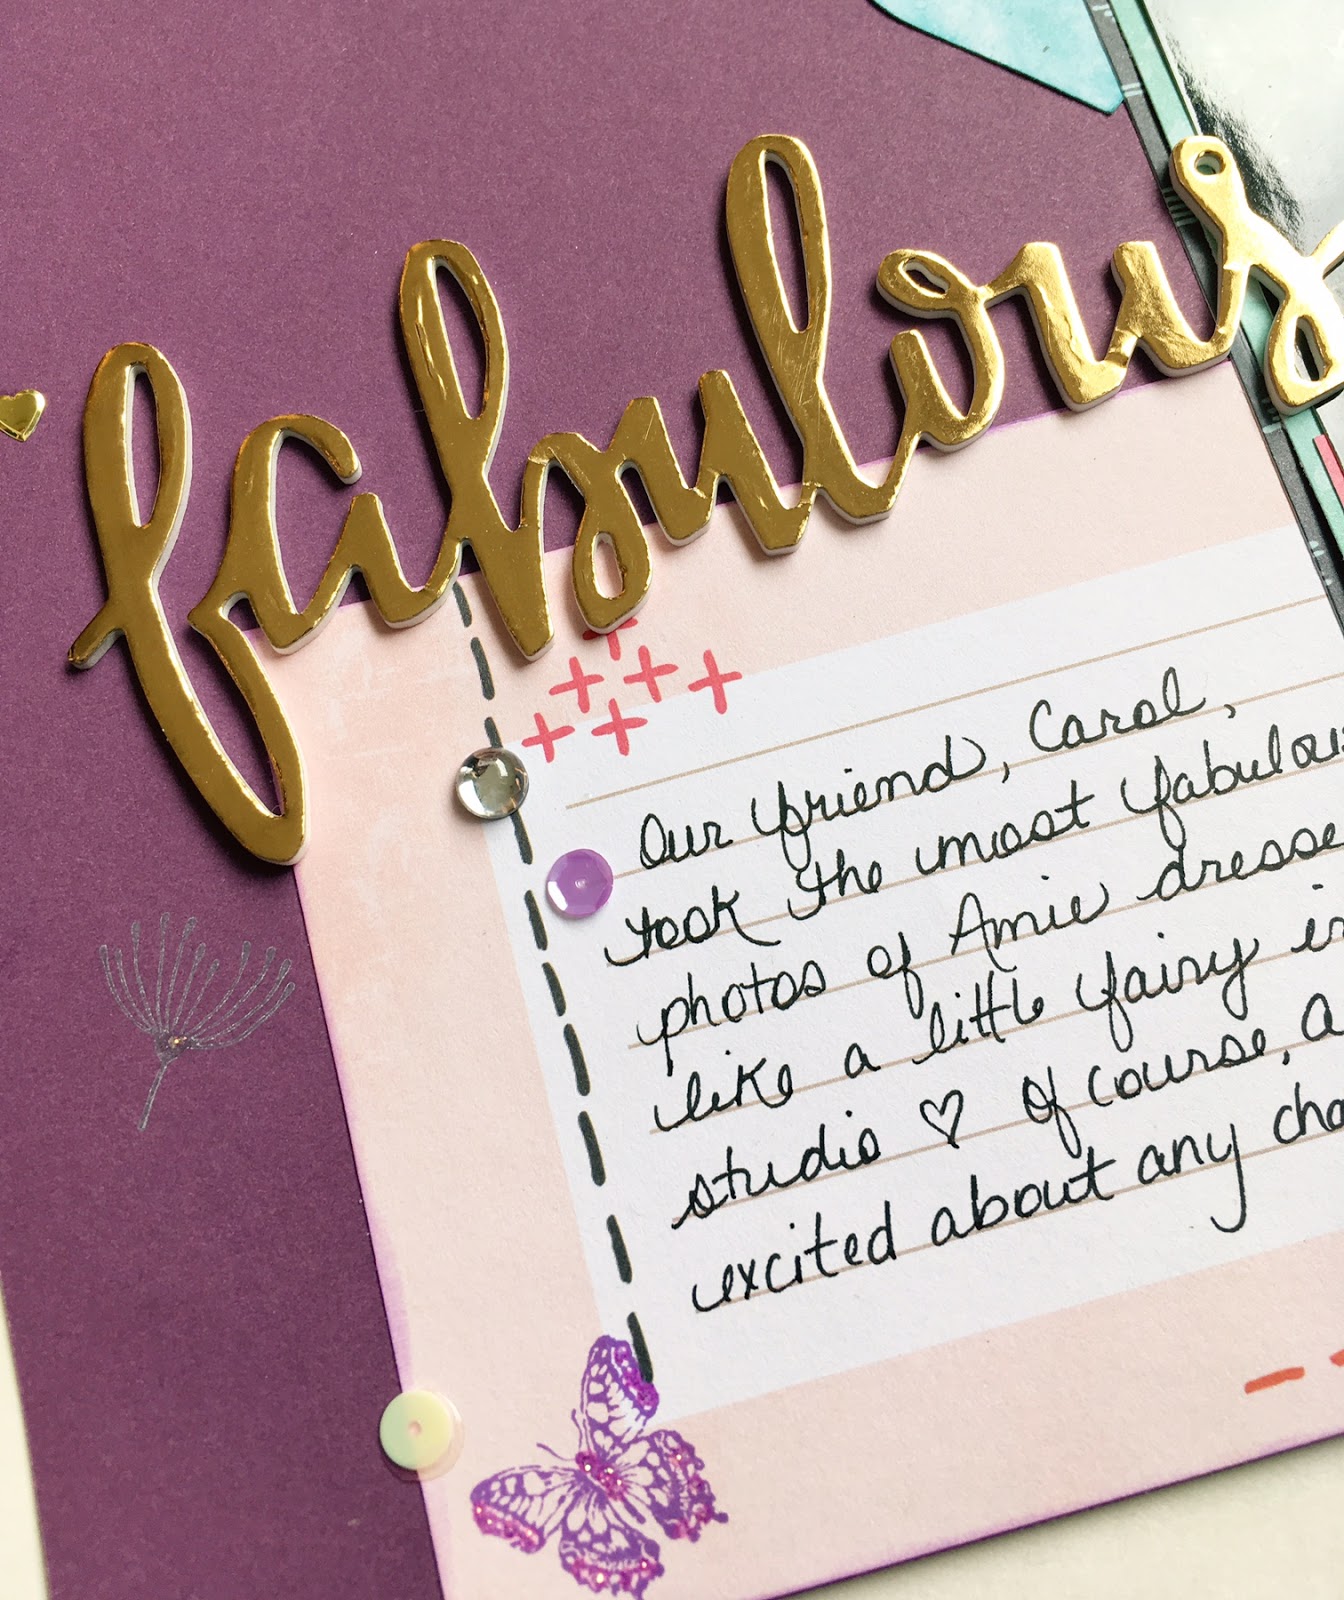 fabulous
Our friend, Carol,
took the most fabulou
photos of Amie dresse
like a little fairy in
studio ♡ Of course, A
excited about any cha